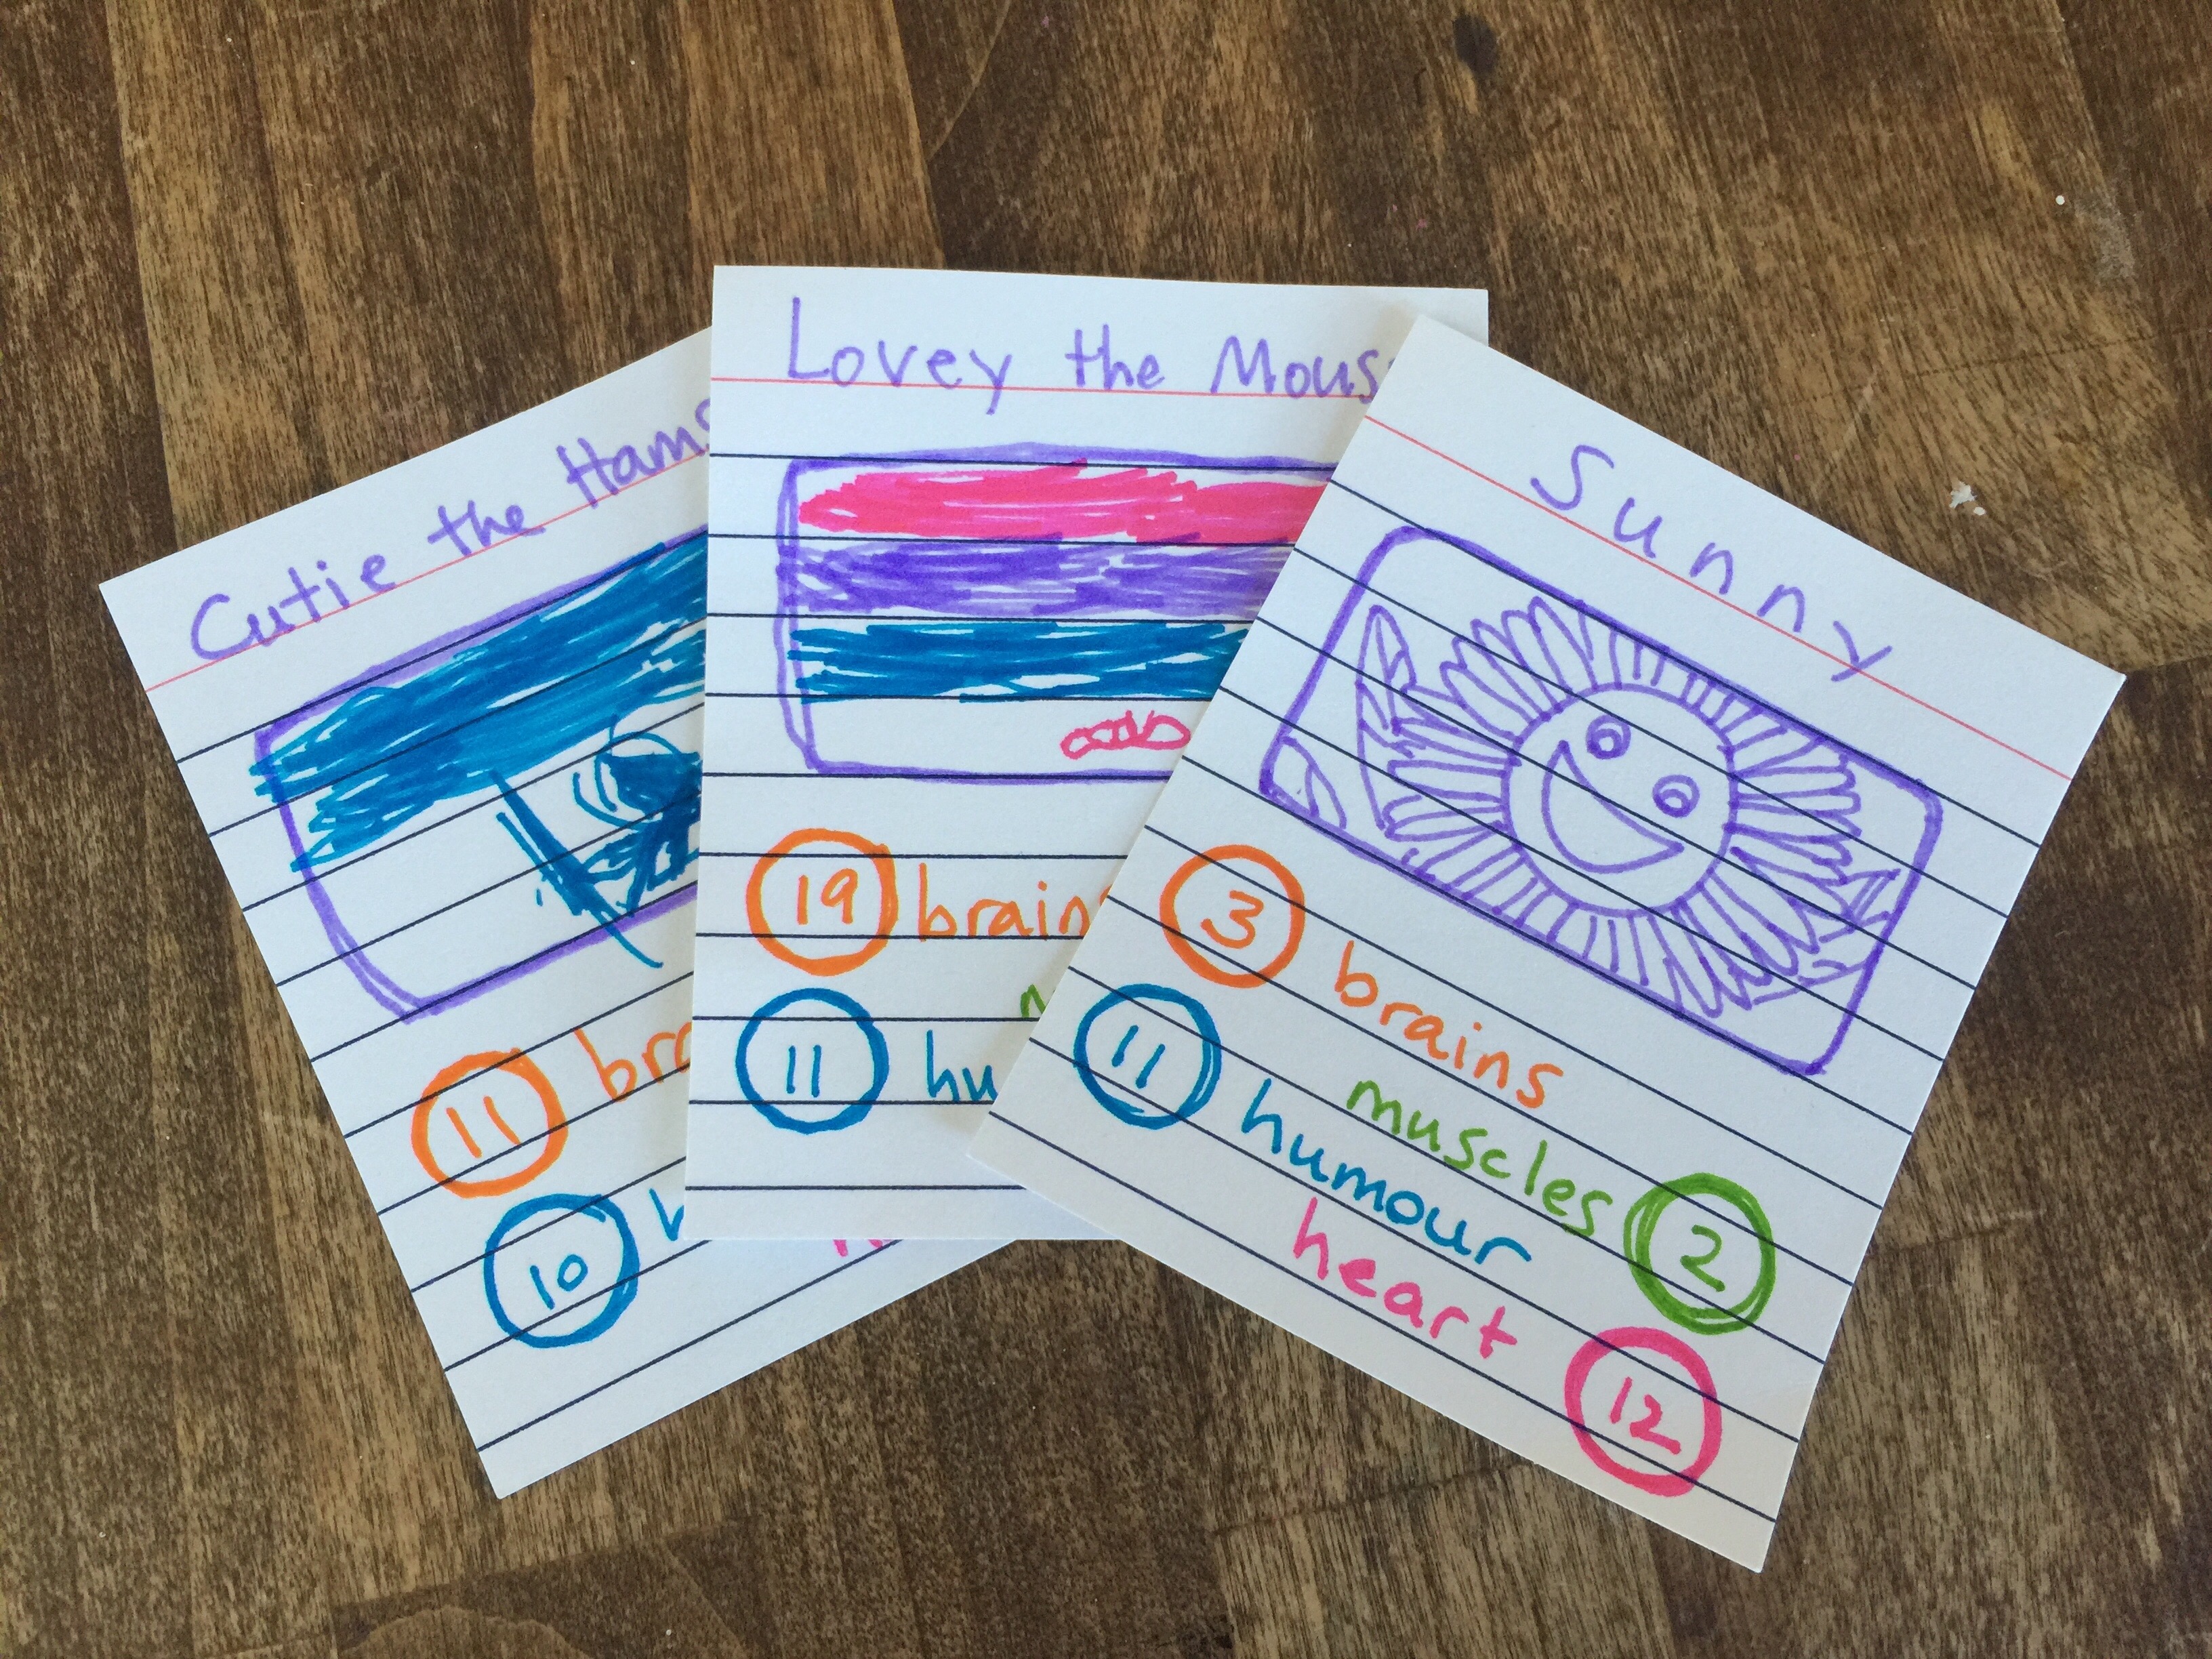 Cutie the Hams
11 bra
10 h
Lovey the Mous
19 brains
11 hu
Sunny
3 brains
muscles 2
11 humour
heart 12